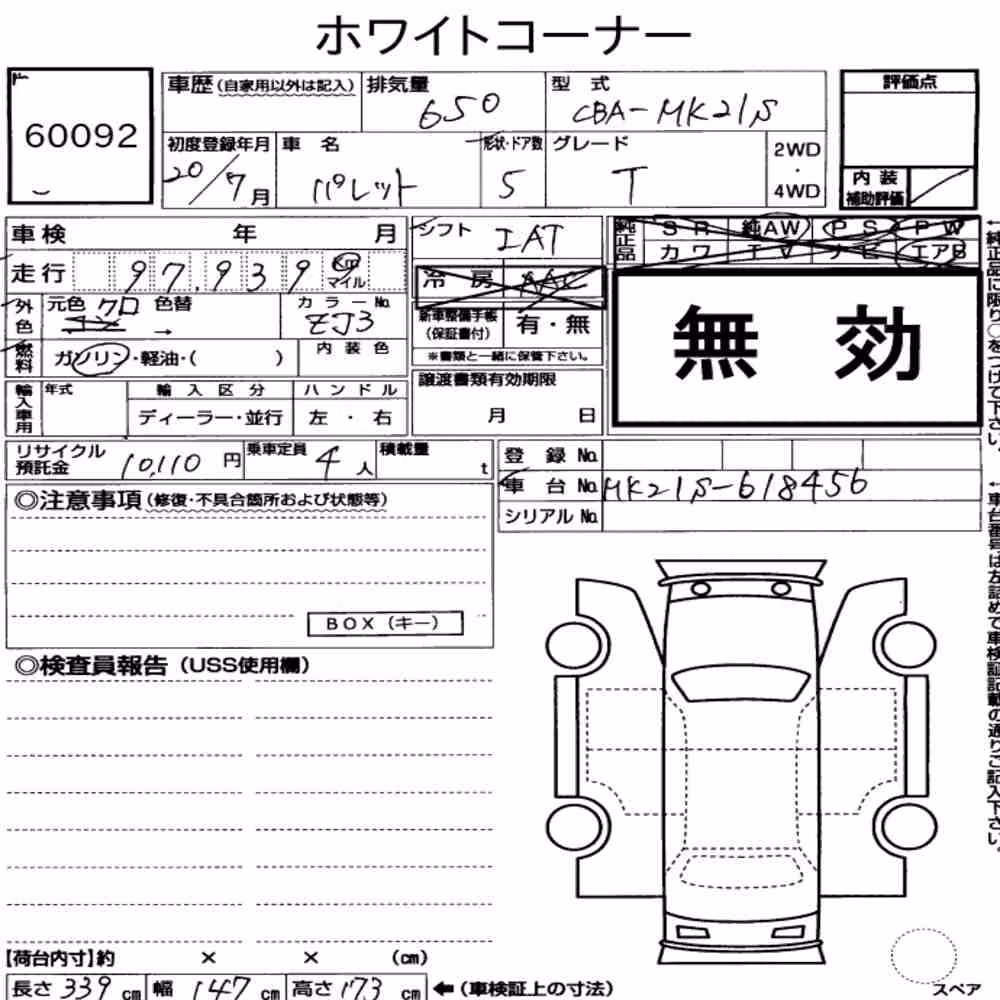 ホワイトコーナー
60092
車歴 (自家用以外は記入) 排気量 型式 評価点
650 CBA-MK21S
初度登録年月 車名 形状・ドア数 グレード 2WD
20/7月 パレット 5 T ・
4WD 内装補助評価
車検 年 月 シフト IAT
純正品 SR 純AW PS PW
カワ TV ナビ エアB
走行 97,939 Km マイル 冷房 AAC
無効
外色 元色 クロ 色替 カラーNo. ZJ3
→
新車整備手帳 (保証書付) 有・無
※書類と一緒に保管下さい。
燃料 ガソリン・軽油・( ) 内装色
輸入車用 年式 輸入区分 ハンドル
ディーラー・並行 左・右
譲渡書類有効期限
月 日
リサイクル預託金 10,110円 乗車定員 4人 積載量 t
登録No.
車台No. MK21S-618456
シリアルNo.
◎注意事項 (修復・不具合箇所および状態等)
BOX (キー)
◎検査員報告 (USS使用欄)
【荷台内寸】約 × × (cm)
長さ 339 cm 幅 147 cm 高さ 173 cm ← (車検証上の寸法)
スペア
↑純正品に限り○をつけて下さい。
↑車台番号は左詰めで車検証記載の通りご記入下さい。